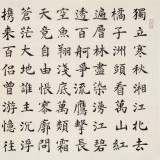 獨立寒秋湘江北去
橘子洲頭看萬山紅
遍層林盡染漫江碧
透百舸爭流鷹擊長
空魚翔淺底萬類霜
天競自由悵寥廓問
蒼茫大地誰主沉浮
携來百侶曾游憶往